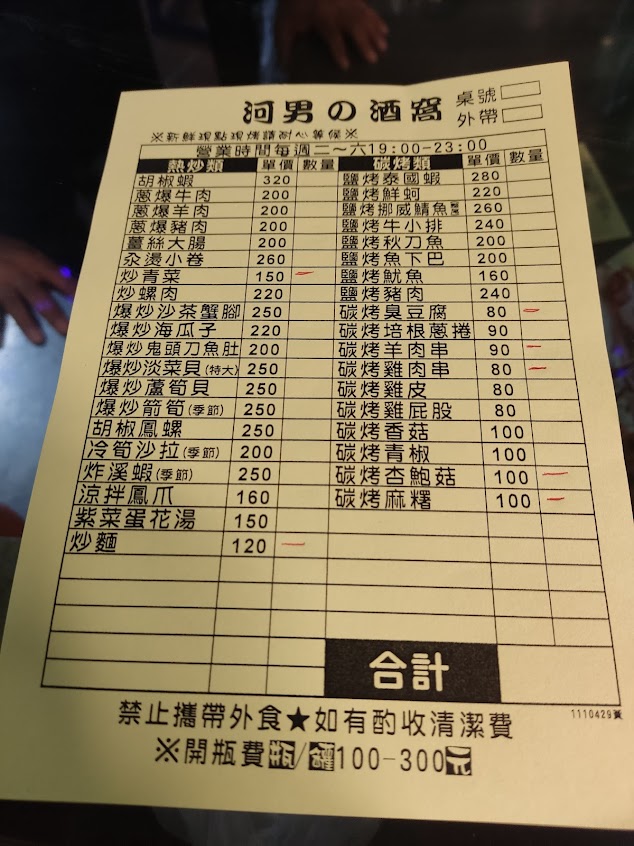 河男の酒窩
桌號
外帶
※新鮮現點現烤請耐心等候※
營業時間每週二～六19:00-23:00
熱炒類 單價 數量 碳烤類 單價 數量
胡椒蝦 320 鹽烤泰國蝦 280
蔥爆牛肉 200 鹽烤鮮蚵 220
蔥爆羊肉 200 鹽烤挪威鯖魚 260
蔥爆豬肉 200 鹽烤牛小排 240
薑絲大腸 200 鹽烤秋刀魚 200
汆燙小卷 260 鹽烤魚下巴 200
炒青菜 150 鹽烤魷魚 160
炒螺肉 220 鹽烤豬肉 240
爆炒沙茶蟹腳 250 碳烤臭豆腐 80
爆炒海瓜子 220 碳烤培根蔥捲 90
爆炒鬼頭刀魚肚 200 碳烤羊肉串 90
爆炒淡菜貝(特大) 250 碳烤雞肉串 80
爆炒蘆筍貝 250 碳烤雞皮 80
爆炒箭筍(季節) 250 碳烤雞屁股 80
胡椒鳳螺 250 碳烤香菇 100
冷筍沙拉(季節) 200 碳烤青椒 100
炸溪蝦(季節) 250 碳烤杏鮑菇 100
涼拌鳳爪 160 碳烤麻糬 100
紫菜蛋花湯 150
炒麵 120
合計
禁止攜帶外食★如有酌收清潔費
1110429黃
※開瓶費瓶/罐100-300元